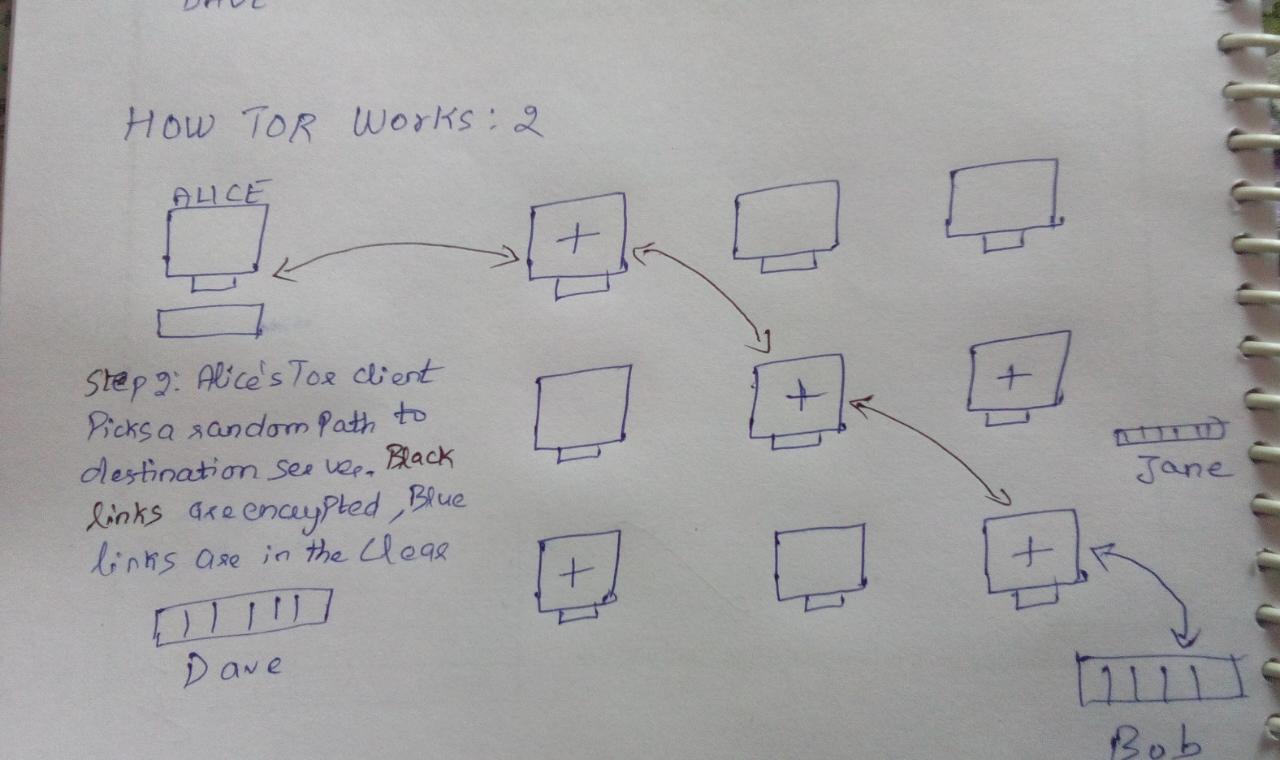 DAVE
HOW TOR WORKS: 2
ALICE
Step 2: Alice's Tor client
Picks a random Path to
destination server. Black
links are encrypted, Blue
links are in the Clear
Dave
Jane
Bob